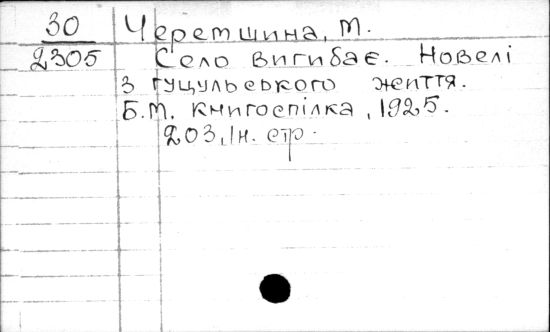 30 Черемшина, М.
2305 Село вигибає. Новелі
з гуцульського життя.
Б.М. Книгоспілка, 1925.
203, Iн. стр.